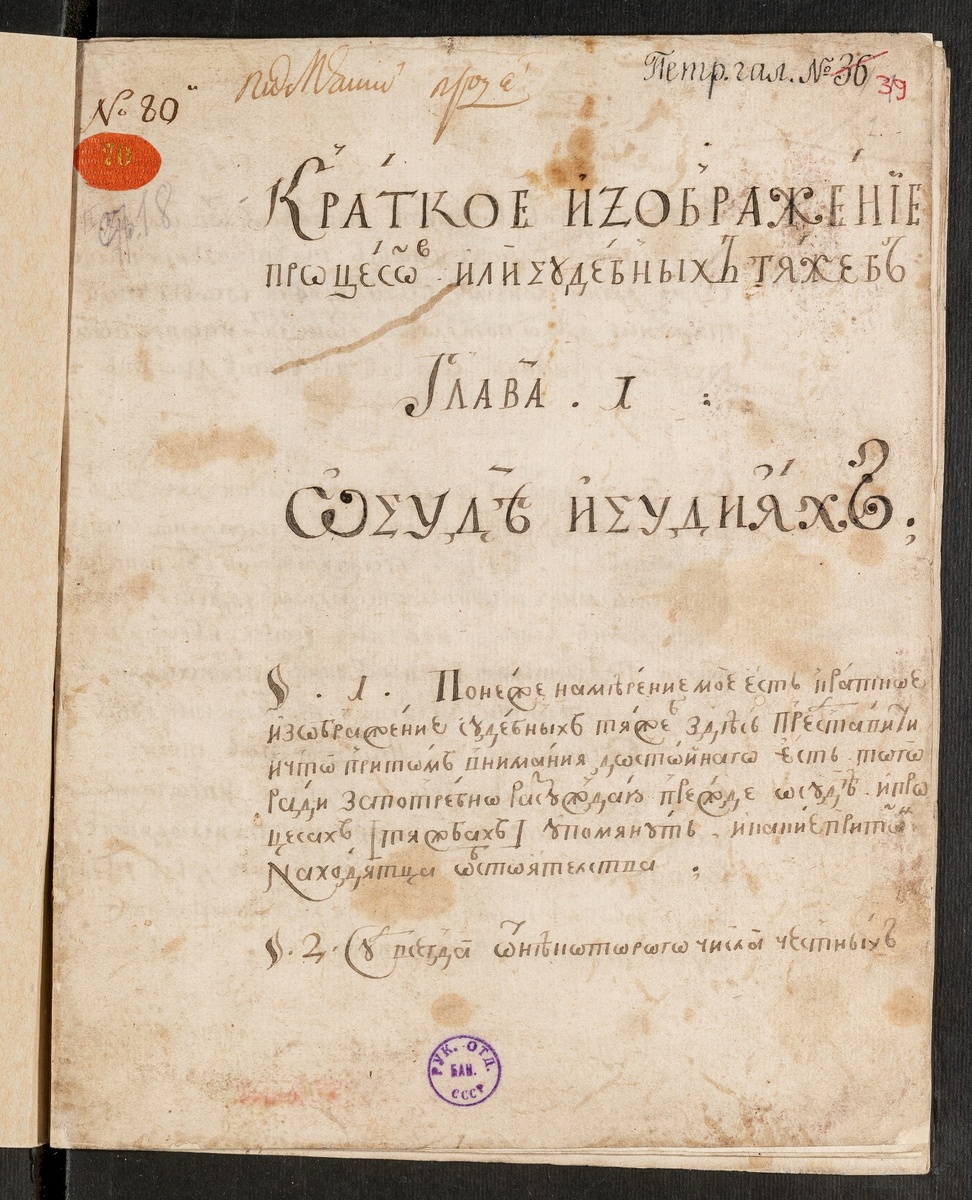 Петр. гал. № 36 39
№ 80
70
18
КРАТКОЕ ИZОБРАЖЕНІЕ
ПРѠЦЕСѠВ ИЛИ СУДЕБНЫХЪ ТЯЖЕБЪ
ГЛАВА . 1 :
Ѡ СУДѢ И СУДИЯХЪ ;
§ . 1 . Понеже намѣрение мое есть краткое
изѡбражение судебныхъ тяжеъ здѣсь престави᷍ти
и чтѡ притомъ внимания достойнагѡ есть тогѡ
ради запотребнѡ расуждаю прежде ѡ судѣ и прѡ
цесахъ [ тяжбахъ ] упомянуть и какие притѡм
находятца ѡбстоятелства ;
§ . 2 . Су всегда ѿ нѣкотораго числа честныхъ
РУК. ОТД.
БАН.
СССР